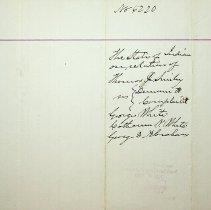 No 6220
The State of Indiana
on relation of
Thomas J.
vs } Demurrer to
Complaint
George White
Catharine P. White
George D. Abraham